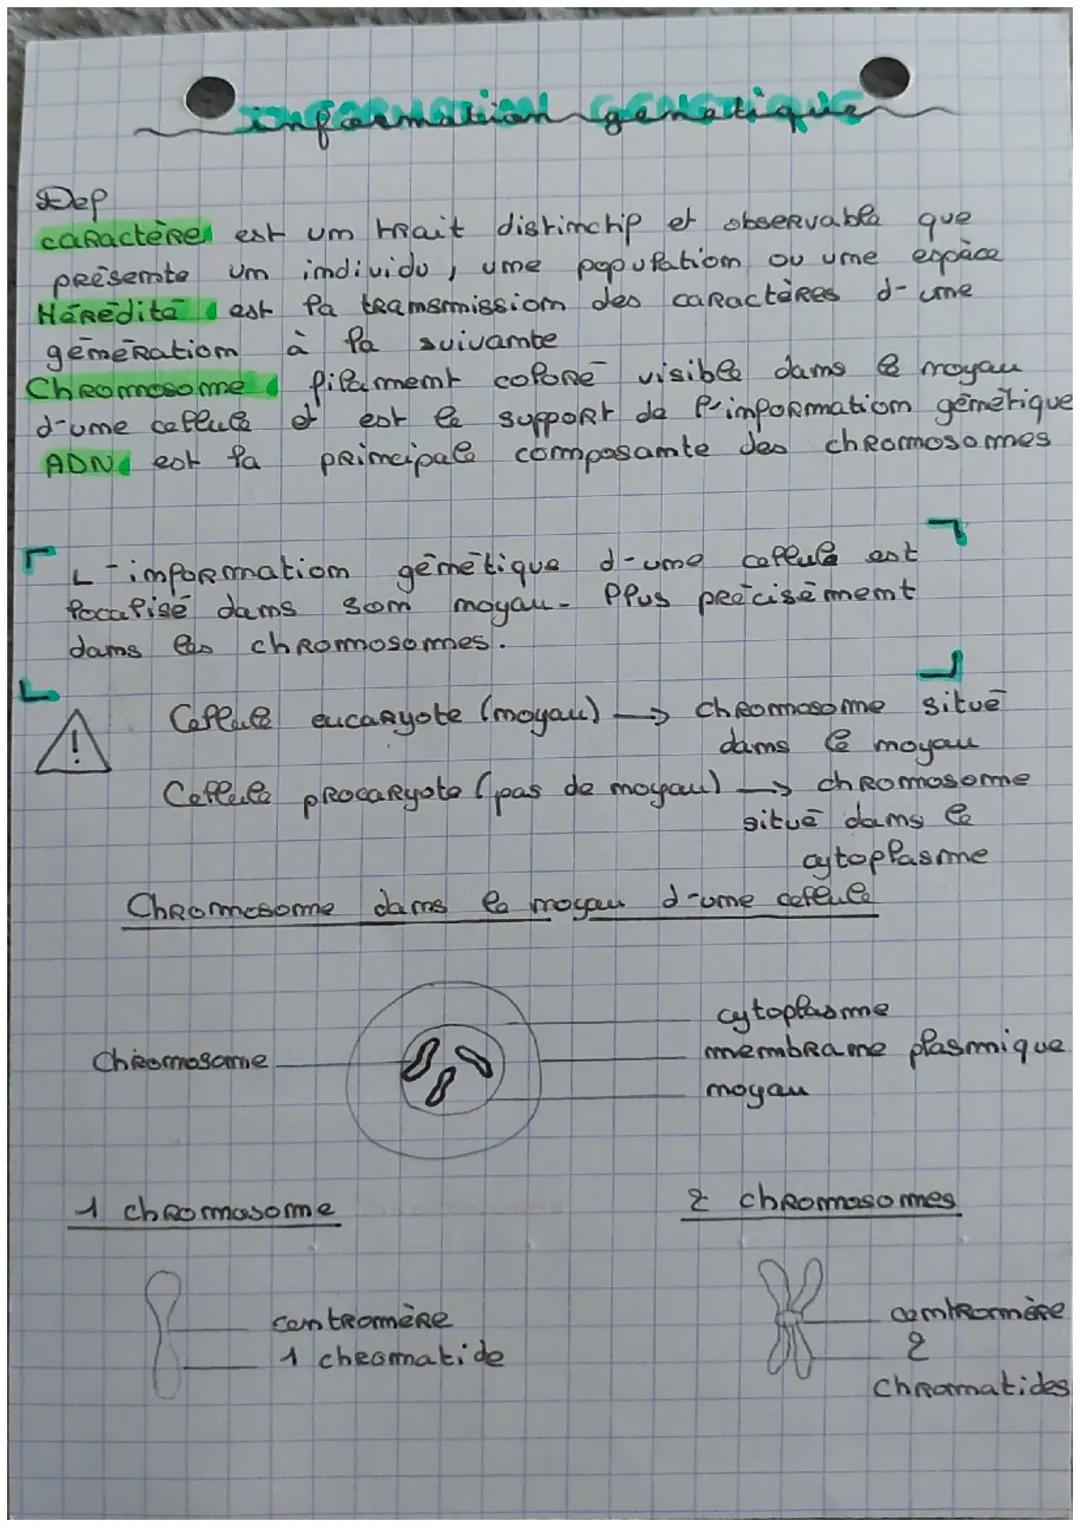 information génétique
Def
caractère est un trait distinctif et observable que
présente un individu, une population ou une espèce
Hérédité est la transmission des caractères d-une
génération à la suivante
Chromosome filament coloré visible dans le noyau
d-une cellule et est le support de l-information génétique
ADN est la principale composante des chromosomes
L-information génétique d-une cellule est
localisé dans son noyau. Plus précisément
dans les chromosomes.
! Cellule eucaryote (noyau) → chromosome situé
dans le noyau
Cellule procaryote (pas de noyau) → chromosome
situé dans le
cytoplasme
Chromosome dans le noyau d-une cellule
cytoplasme
Chromosome membrane plasmique
noyau
1 chromosome 2 chromosomes
centromère centromère
1 chromatide 2
chromatides